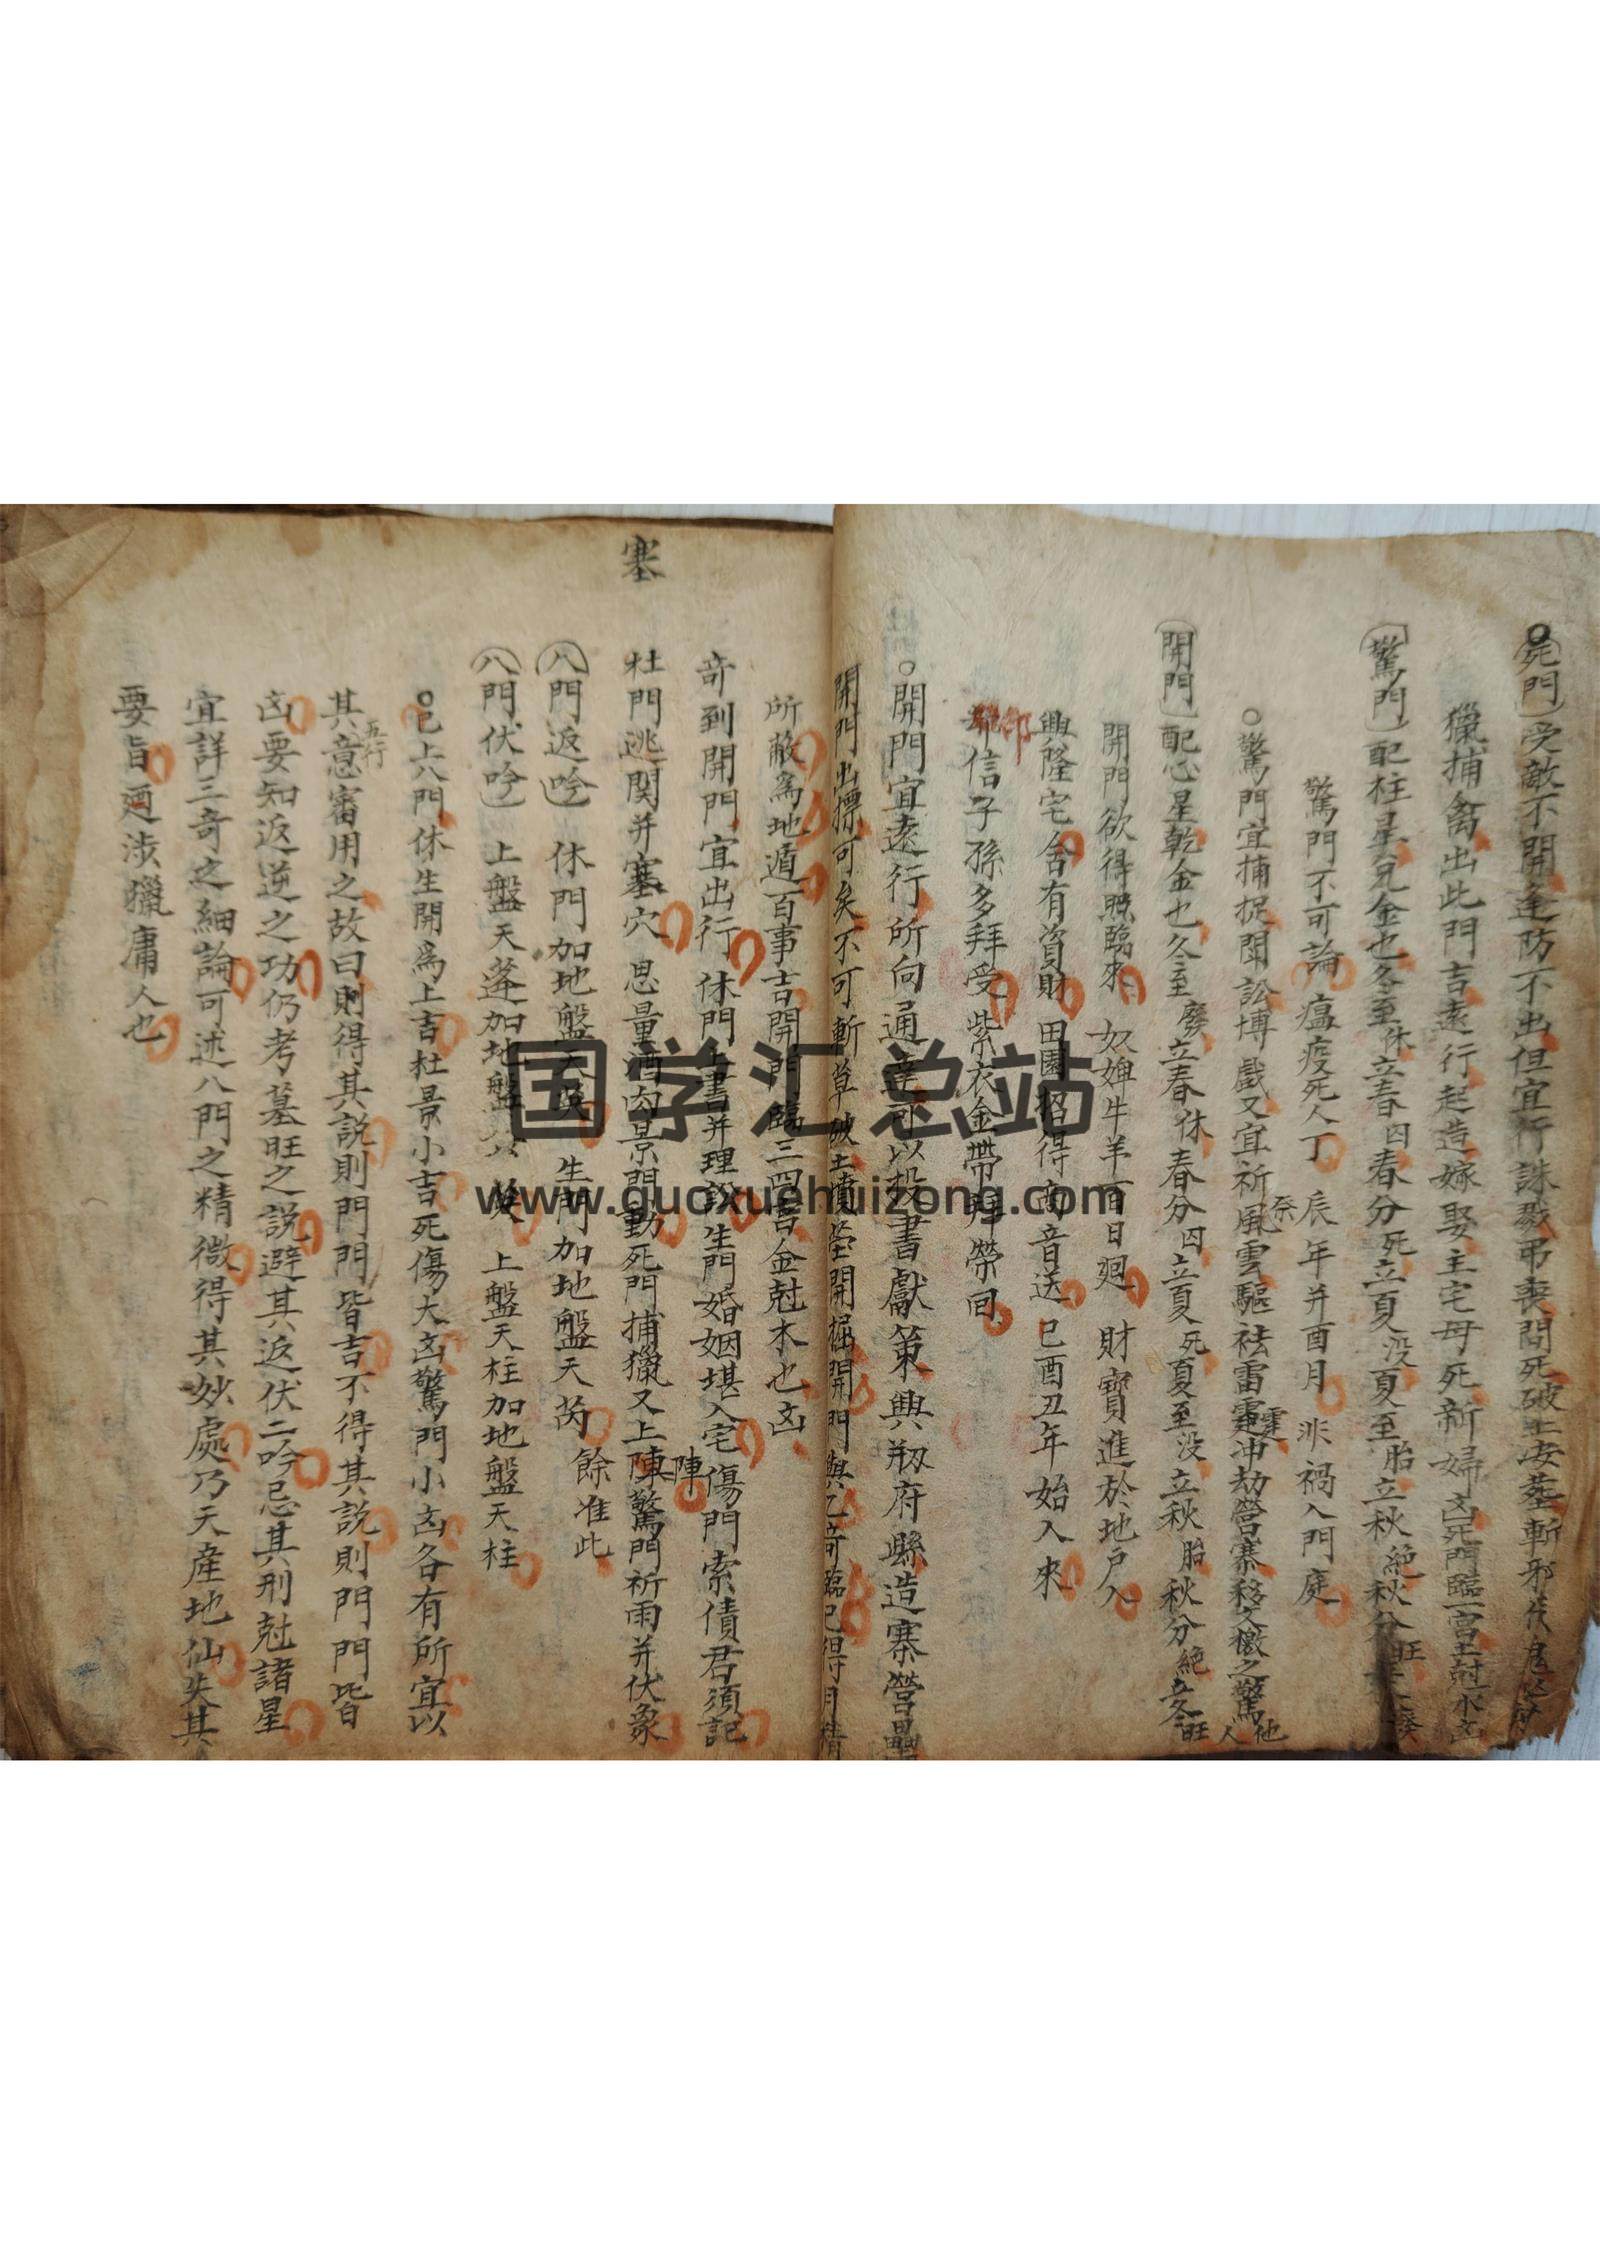 死門受敵不開逢防不出但宜行誅戮弔喪問死破土安塟斬邪伐鬼
獵捕禽出此門吉遠行起造嫁娶主宅母死新婦凶死門臨一宮土尅水凶
驚門配柱星兌金也冬至休立春囚春分死立夏没夏至胎立秋絶秋分旺
驚門不可論 瘟疫死人丁 辰年并酉月 非禍入門庭
○驚門宜捕捉聞訟博戲又宜祈風雲驅祛雷霆冲劫營寨移文檄之驚他人
開門配心星乾金也冬至廢立春休春分囚立夏死夏至没立秋胎秋分絶立冬旺
開門欲得照臨來 奴婢牛羊百日迴 財寶進於地户入
興隆宅舍有資財 田園招得商音送 巳酉丑年始入來
印信子孫多拜受 紫衣金帶拜榮回
○開門宜遠行所向通達可以投書獻策興剏府縣造寨營壘
開門出摽可矣不可斬草破土墳塋開掘開門與乙奇臨己得月精
所蔽爲地遁百事吉開門臨三四宮金尅木也凶
奇到開門宜出行 休門上書并理訟 生門婚姻堪入宅 傷門索債君須記
塞
杜門逃関并塞穴 思量酒肉景門動 死門捕獵又上陳 陣 驚門祈雨并伏象
八門返吟 休門加地盤天英 生門加地盤天芮 餘准此
八門伏吟 上盤天蓬加地盤天蓬 上盤天柱加地盤天柱
○已上八門休生開爲上吉杜景小吉死傷大凶驚門小凶各有所宜以
五行
其意審用之故曰則得其説則門門皆吉不得其説則門門皆
凶要知返逆之功仍考墓旺之説避其返伏二吟忌其刑尅諸星
宜詳三奇之細論可述八門之精微得其妙處乃天産地仙失其
要旨廼涉獵庸人也
国学汇总站
www.guoxuehuizong.com